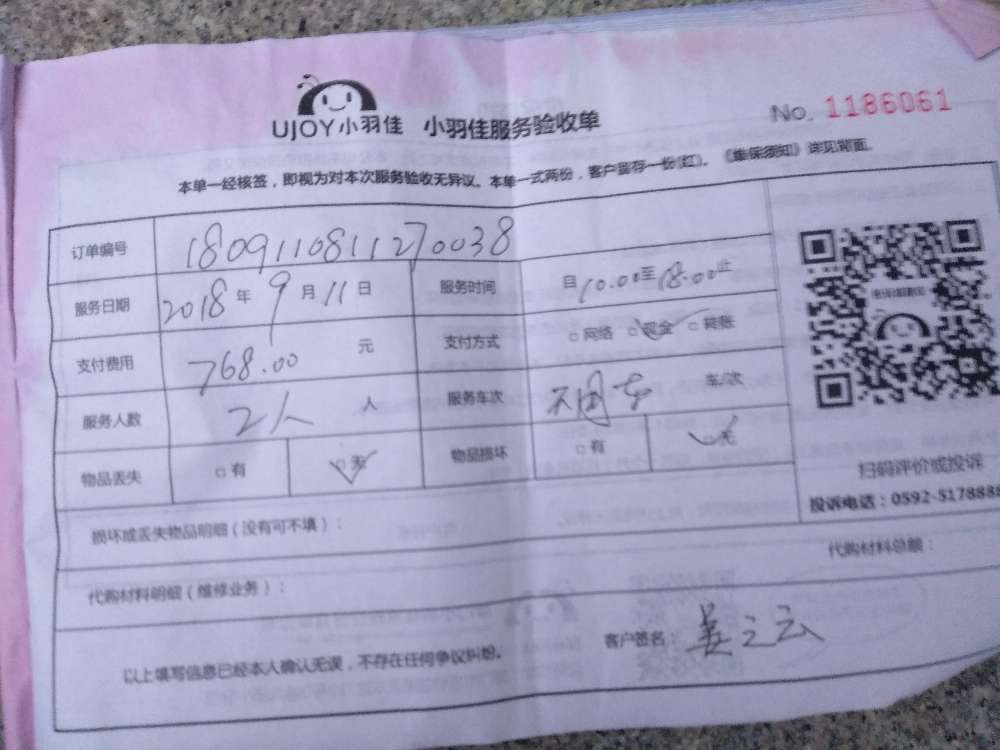 UJOY小羽佳 小羽佳服务验收单 No. 1186061
本单一经核签，即视为对本次服务验收无异议。本单一式两份，客户留存一份(红)。《维保须知》详见背面。
订单编号 1809110811270038
服务日期 2018年9月11日 服务时间 自10.00至18.00止
支付费用 768.00 元 支付方式 □网络 □现金 □转账
服务人数 2人 人 服务车次 不用车 车/次
物品丢失 □有 □无 物品损坏 □有 □无
扫码评价或投诉
投诉电话：0592-5178888
损坏或丢失物品明细（没有可不填）：
代购材料明细（维修业务）： 代购材料总额：
以上填写信息已经本人确认无误，不存在任何争议纠纷。 客户签名： 姜之云